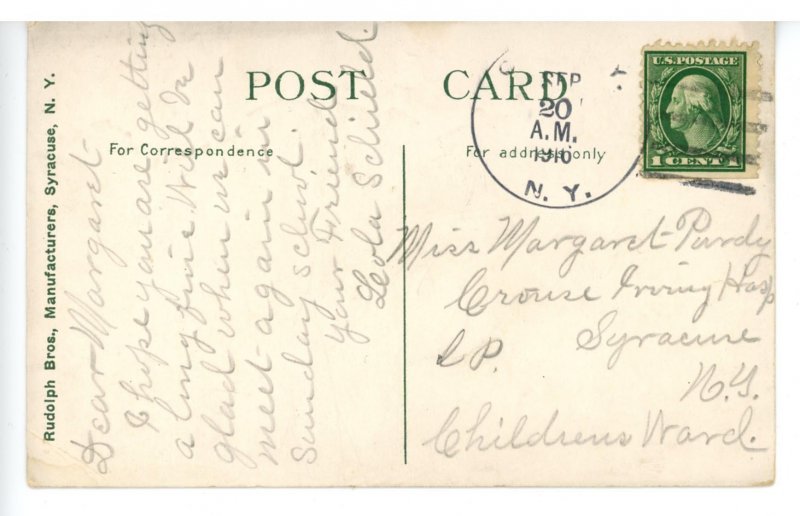 POST CARD
For Correspondence
For address only
Rudolph Bros., Manufacturers, Syracuse, N. Y.
SEP
20
A.M.
N. Y.
U.S. POSTAGE
1 CENT 1
Dear Margaret
I hope you are getting
along fine Will be
glad when we can
meet again in
Sunday School.
Your Friend
Leola
Miss Margaret Purdy
Crouse Irving Hosp
Syracuse
N.Y.
Childrens Ward.